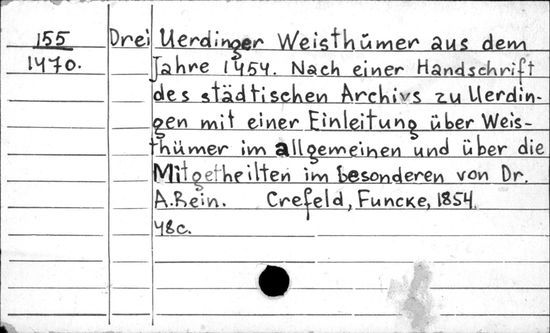 155 Drei Uerdinger Weisthümer aus dem
1470. Jahre 1454. Nach einer Handschrift
des städtischen Archivs zu Uerdin-
gen mit einer Einleitung über Weis-
thümer im allgemeinen und über die
Mitgetheilten im besonderen von Dr.
A. Rein. Crefeld, Funcke, 1854.
48c.